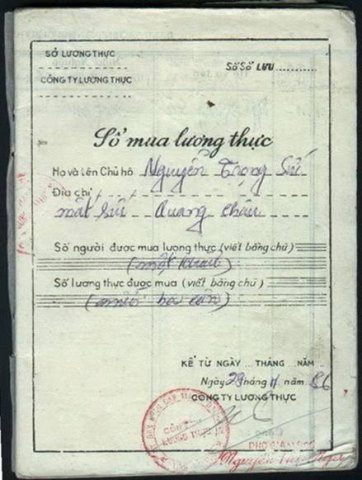 SỞ LƯƠNG THỰC
Số Sổ LƯU
CÔNG TY LƯƠNG THỰC
Sổ mua lương thực
Họ và tên Chủ hộ Nguyễn Trọng
Địa chỉ
Quang Châu
Số người được mua lương thực (viết bằng chữ)
(một
Số lương thực được mua (viết bằng chữ)
(mười ba
KỂ TỪ NGÀY THÁNG NĂM
Ngày 29 tháng 11 năm 86
CÔNG TY LƯƠNG THỰC
CÔNG TY
LƯƠNG THỰC
PHÓ GIÁM ĐỐC
Nguyễn